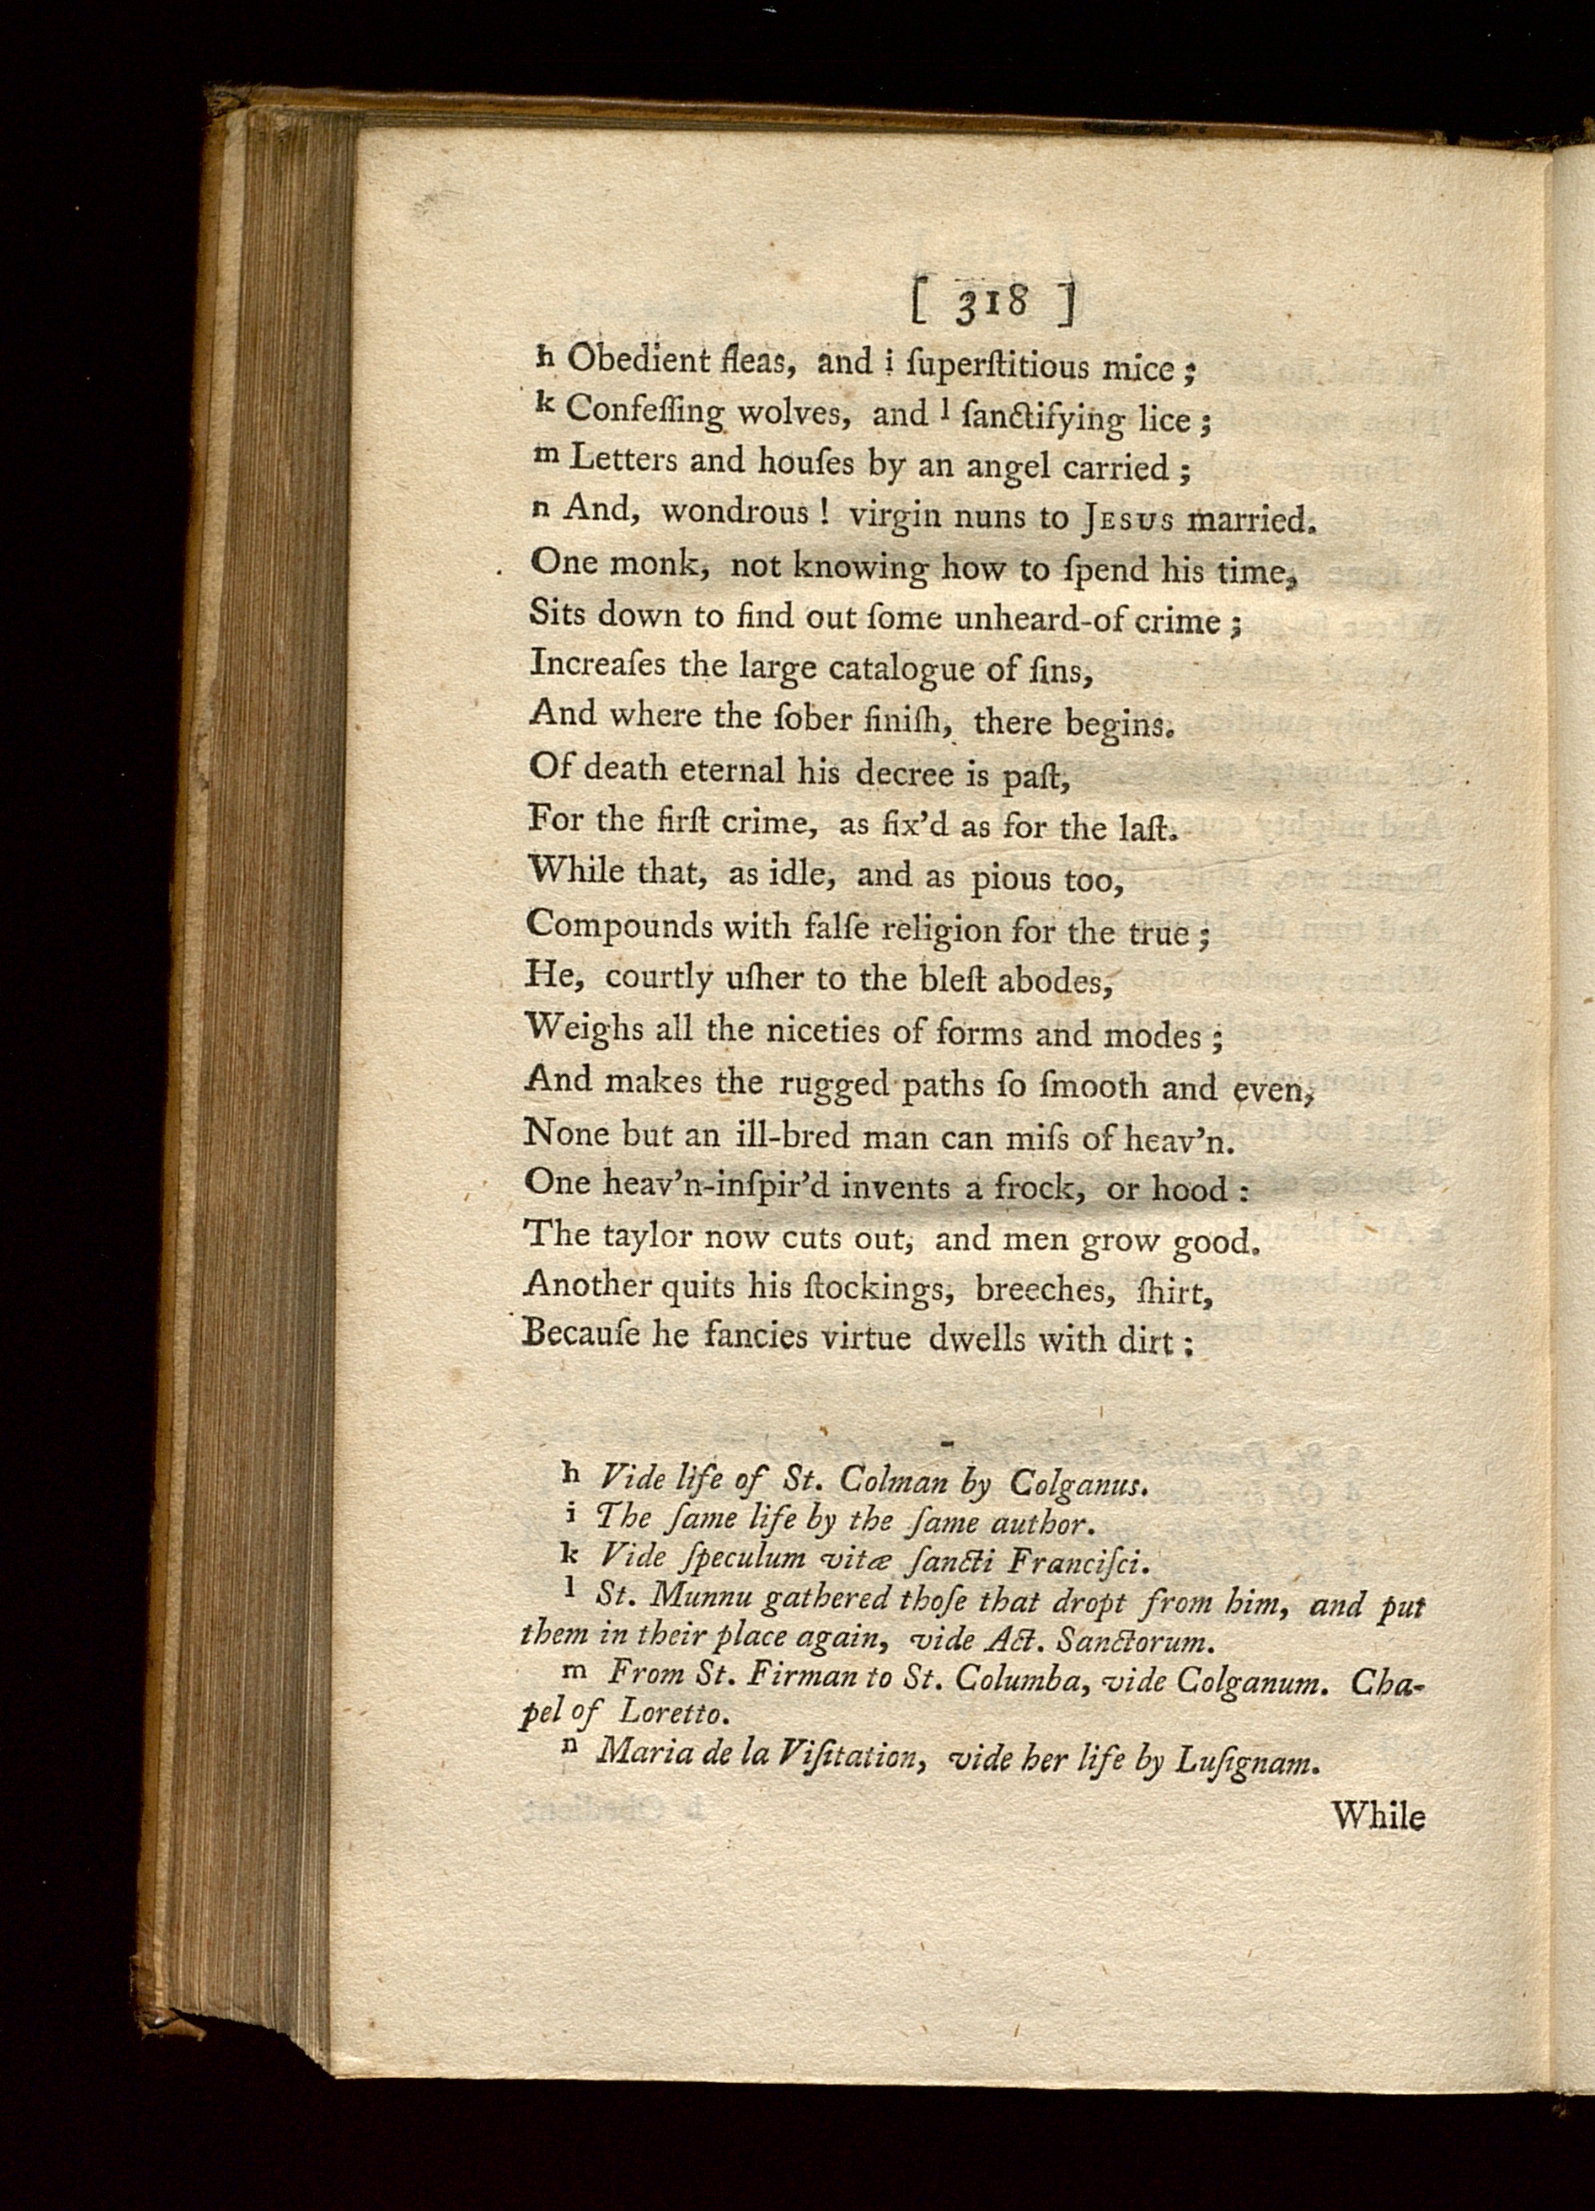 [ 318 ]
h Obedient fleas, and i ſuperſtitious mice ;
k Confeſſing wolves, and l ſanctifying lice ;
m Letters and houſes by an angel carried ;
n And, wondrous ! virgin nuns to JESUS married.
One monk, not knowing how to ſpend his time,
Sits down to find out ſome unheard-of crime ;
Increaſes the large catalogue of ſins,
And where the ſober finiſh, there begins.
Of death eternal his decree is paſt,
For the firſt crime, as fix'd as for the laſt.
While that, as idle, and as pious too,
Compounds with falſe religion for the true ;
He, courtly uſher to the bleſt abodes,
Weighs all the niceties of forms and modes ;
And makes the rugged paths ſo ſmooth and even,
None but an ill-bred man can miſs of heav'n.
One heav'n-inſpir'd invents a frock, or hood :
The taylor now cuts out, and men grow good.
Another quits his ſtockings, breeches, ſhirt,
Becauſe he fancies virtue dwells with dirt :
h Vide life of St. Colman by Colganus.
i The ſame life by the ſame author.
k Vide ſpeculum vitæ ſancti Franciſci.
l St. Munnu gathered thoſe that dropt from him, and put
them in their place again, vide Act. Sanctorum.
m From St. Firman to St. Columba, vide Colganum. Cha-
pel of Loretto.
n Maria de la Viſitation, vide her life by Luſignam.
While